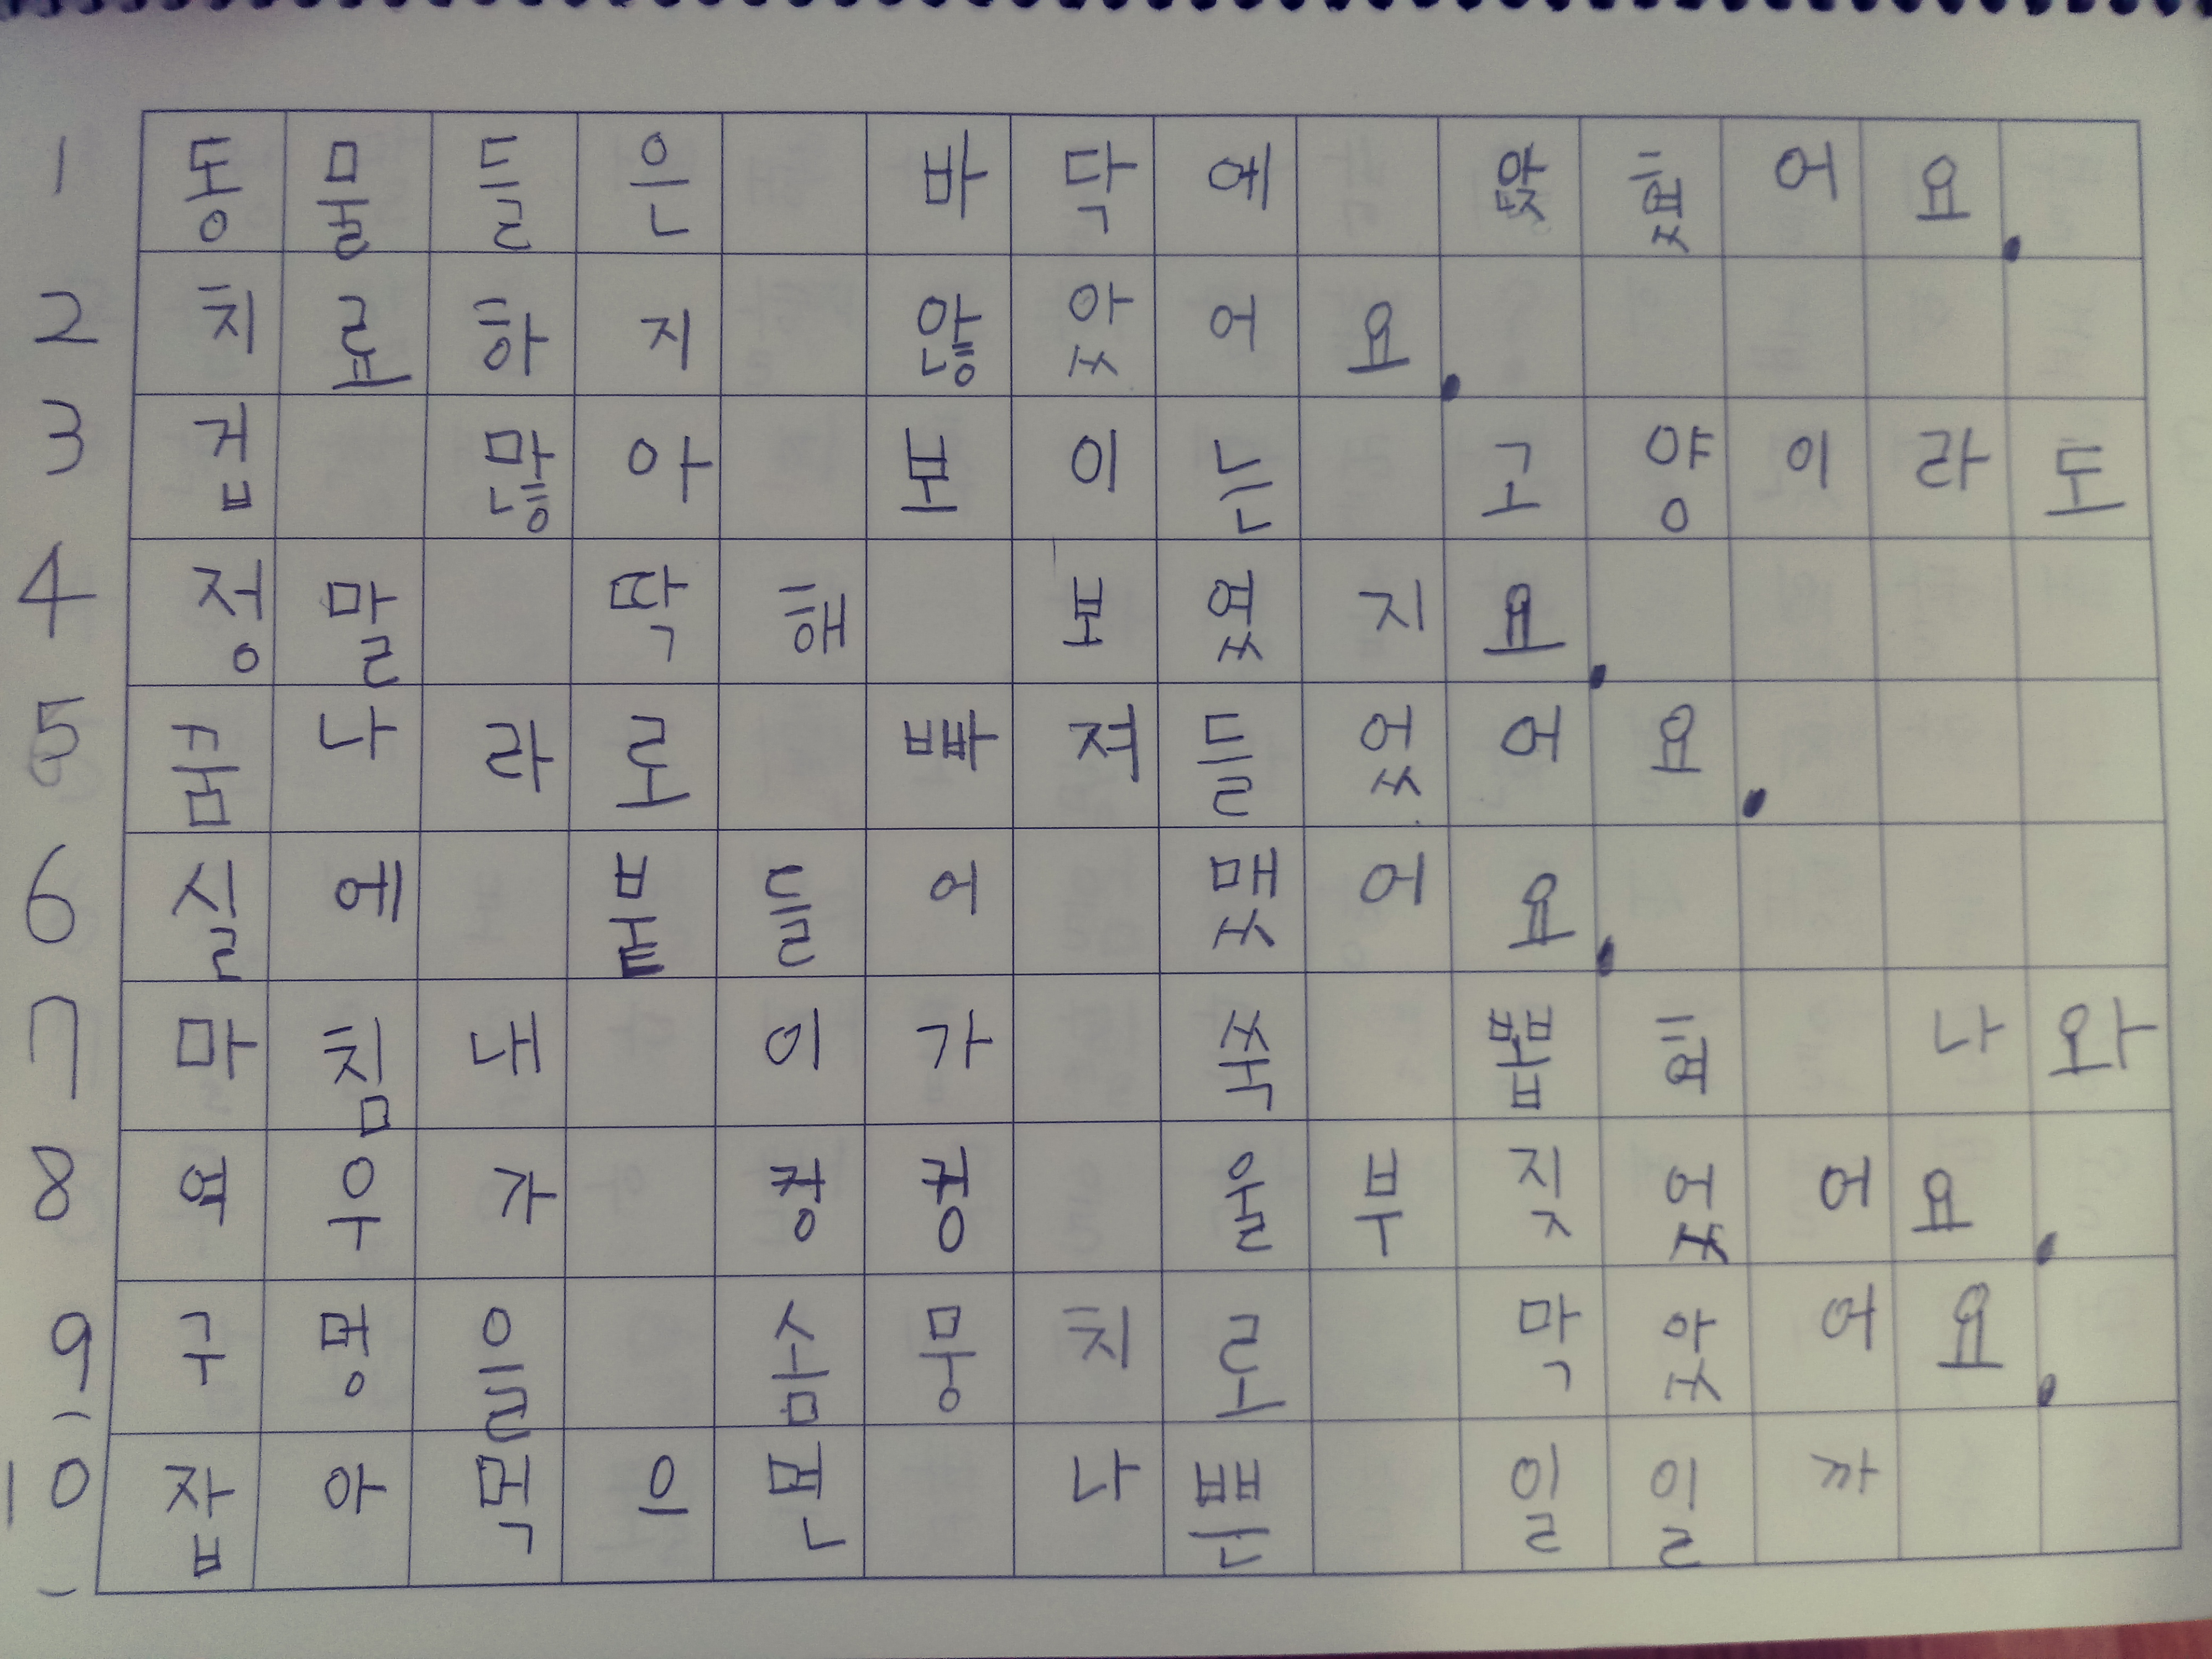 1 동물들은 바닥에 앉혔어요.
2 치료하지 않았어요.
3 겁 많아 보이는 고양이라도
4 정말 딱해 보였지요.
5 꿈나라로 빠져들었어요.
6 실에 붙들어 맸어요.
7 마침내 이가 쑥 뽑혀 나와
8 여우가 컹컹 울부짖었어요.
9 구멍을 솜뭉치로 막았어요.
10 잡아먹으면 나쁜 일일까